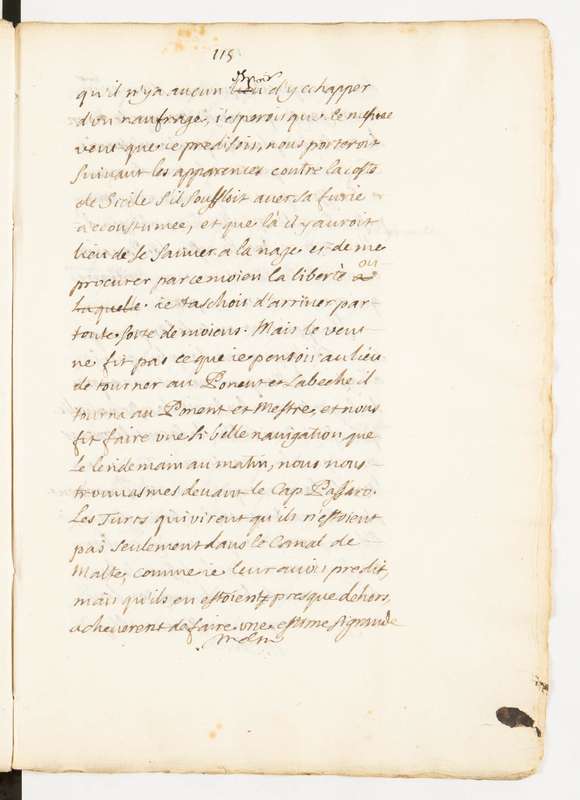 115
espoir
qu'il n'y a aucun lieu d'y echapper
d'un naufrage, i'esperois que le mesme
vent que ie predisois, nous porteroit
suivant les apparences contre la coste
de Sicile s'il souffloit avec sa furie
accoustumee, et que là il y auroit
lieu de se sauver a la nage et de me
procurer par ce moien la liberté a ou
laquelle ie taschois d'arriver par
toute sorte de moiens. Mais le vent
ne fit pas ce que ie pensois au lieu
de tourner au Ponent et Labeche il
tourna au Ponent et Mestre, et nous
fit faire une si belle navigation que
le lendemain au matin, nous nous
trouvasmes devant le Cap Passaro.
Les Turcs qui virent qu'ils n'estoient
pas seulement dans le Canal de
Malte, comme ie leur avois predit,
mais qu'ils en estoient presque dehors,
acheverent de faire une estime si grande